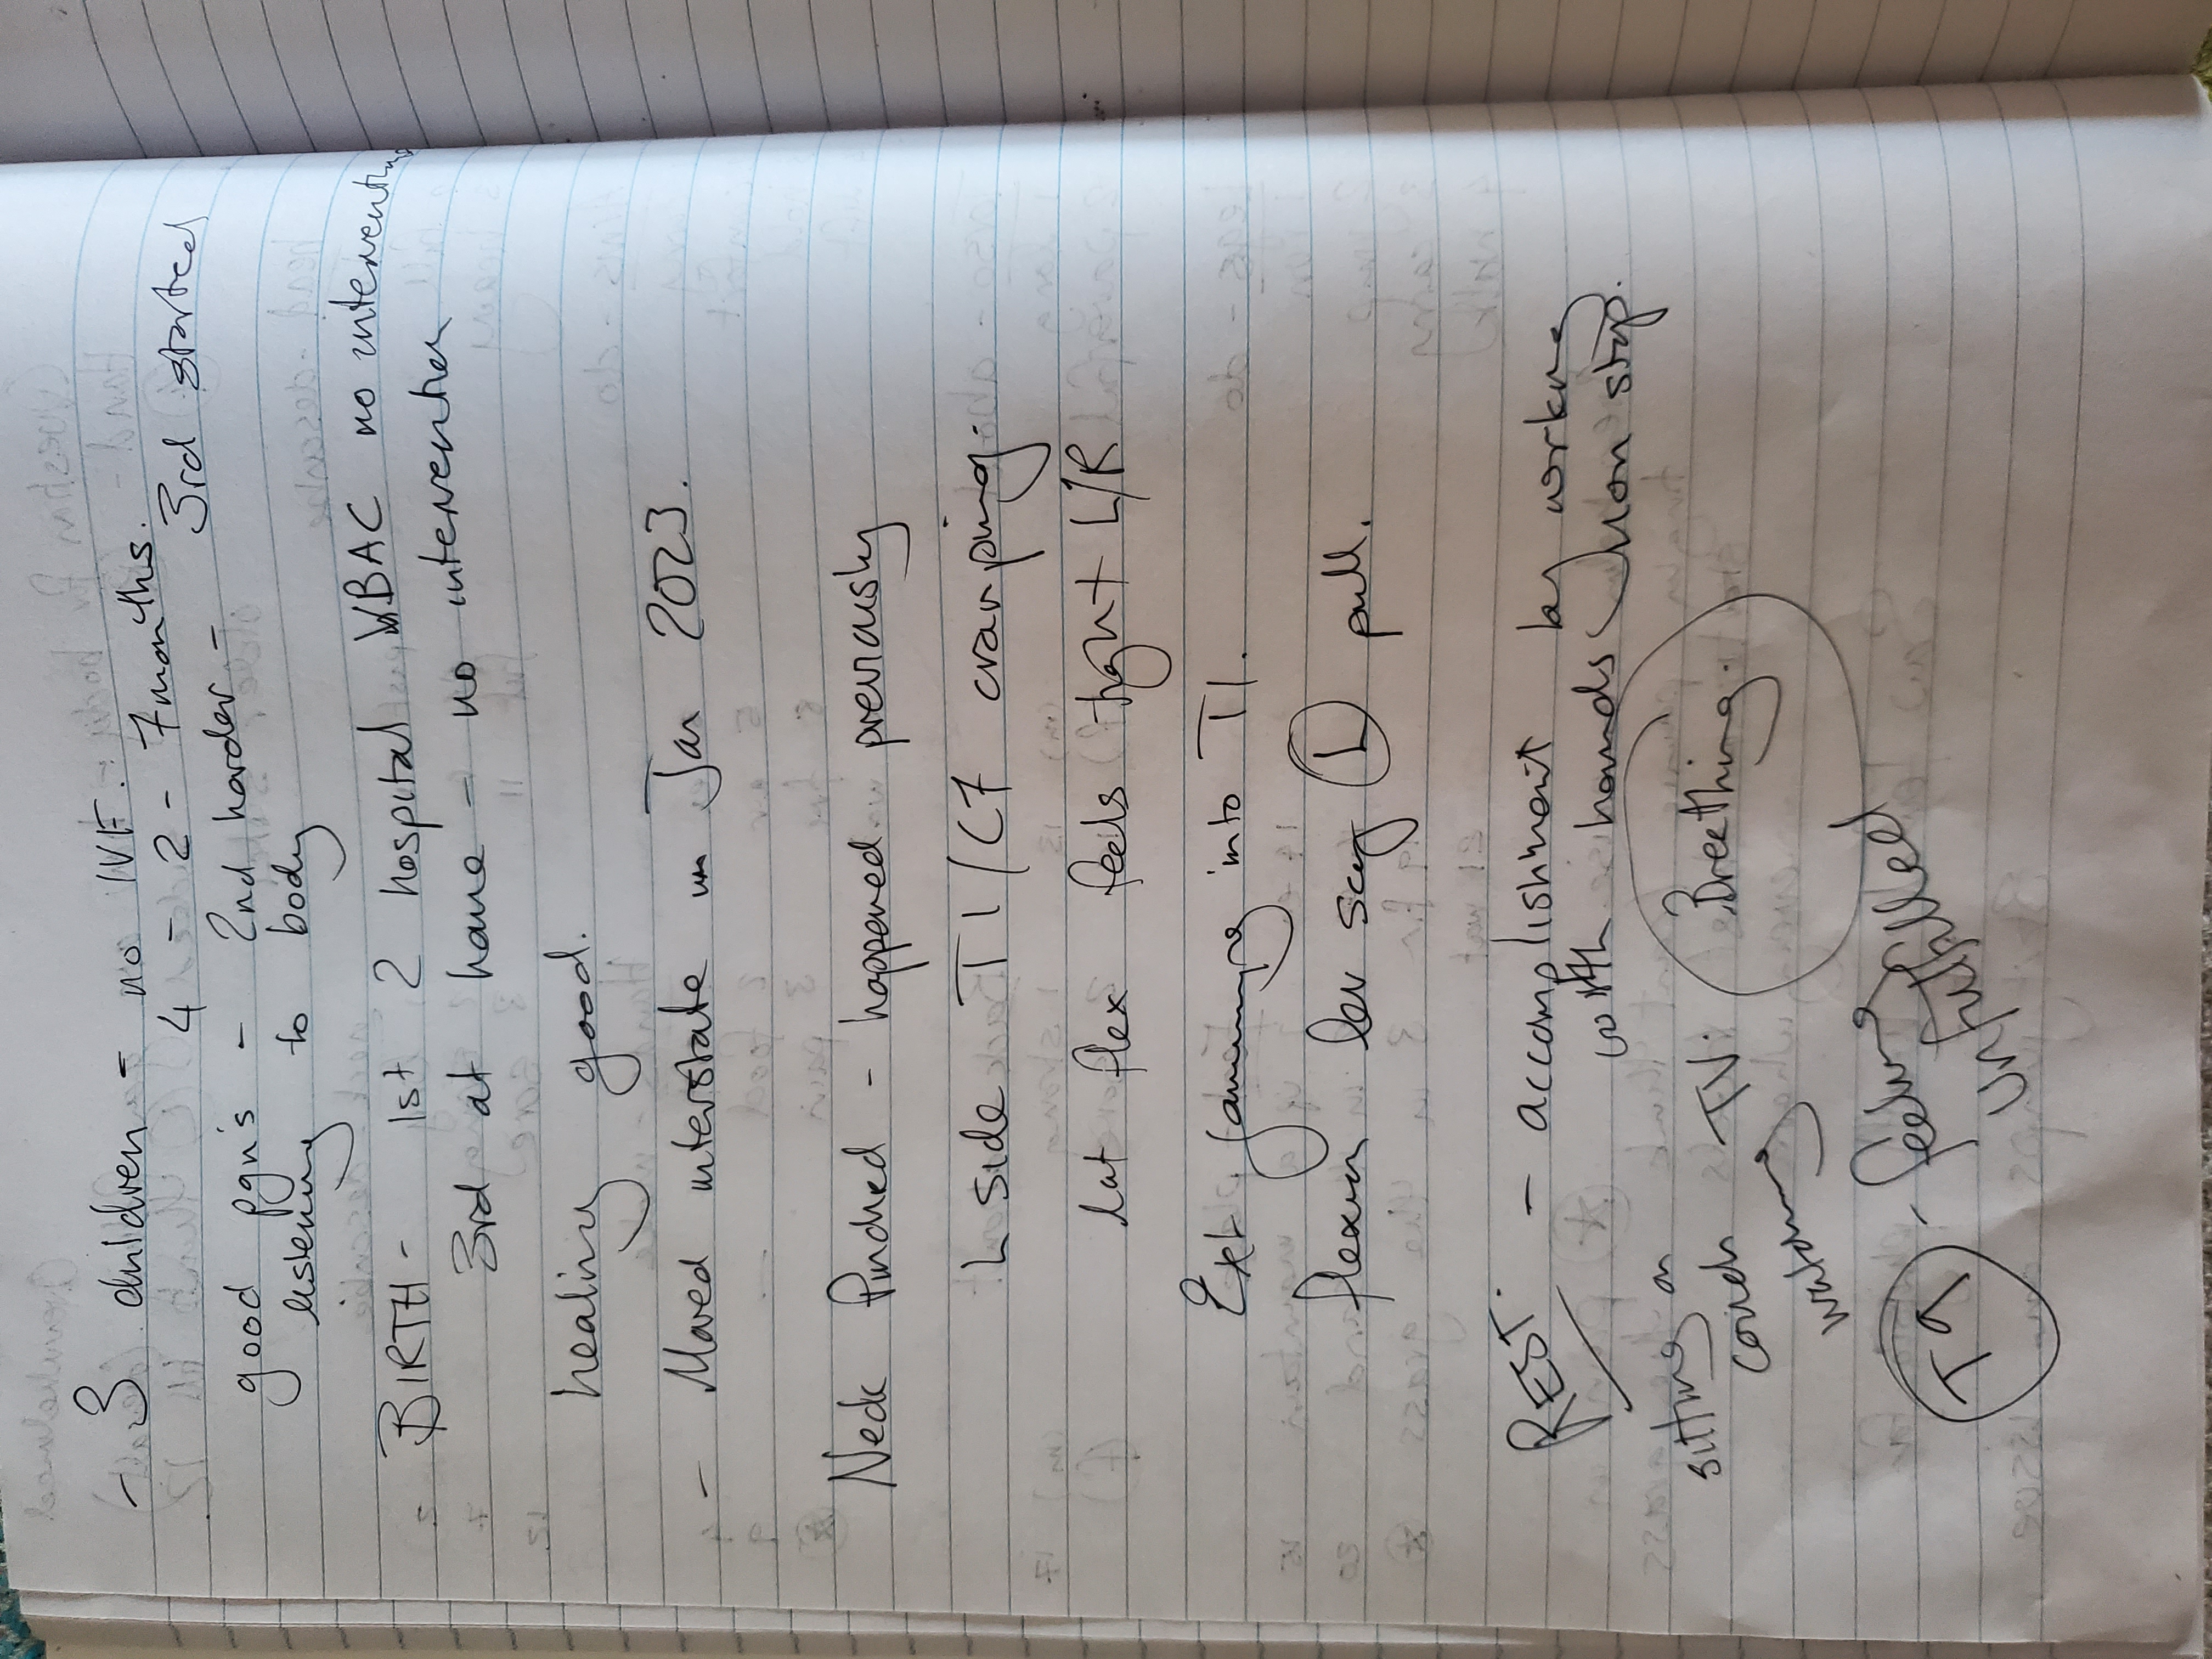 - 3 children - no IVF.
4 - 2 - 7 months.
good pgn's - 2nd harder - 3rd started
listening to body
BIRTH - 1st 2 hospital VBAC no intervention
3rd at home - no intervention
healing good.
- Moved interstate in Jan 2023.
Neck Pinched - happened previously
L side T1/C7 cramping.
Lat flex feels tight L/R
Ext jamming into T1.
flexion lev scap L pull.
REST. - accomplishment by working
with hounds non stop.
sitting on
couch TV. Breething.
watching
TA - feeling fulfilled
unfulfilled